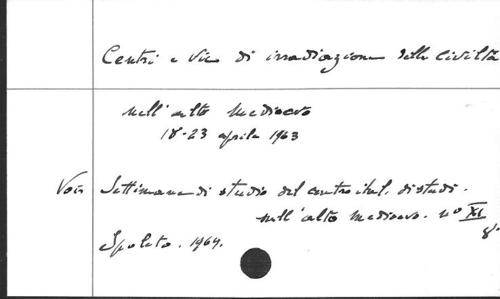 Centri e vie di irradiazione della civiltà
nell'alto medioevo
18-23 aprile 1963
Voir Settimane di studio del centro ital. di studi.
nell'alto medioevo. no XI
8°
Spoleto. 1964.